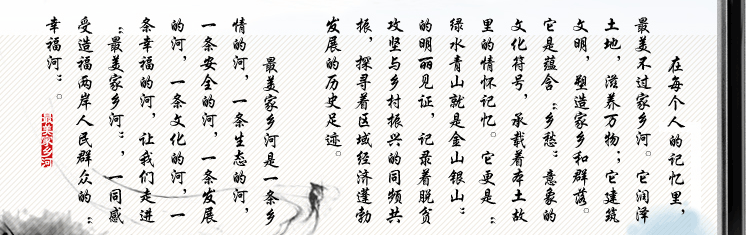 在每个人的记忆里，
最美不过家乡河。它润泽
土地，滋养万物；它建筑
文明，塑造家乡和群落。
它是蕴含“乡愁”意象的
文化符号，承载着本土故
里的情怀记忆。它更是“
绿水青山就是金山银山”
的明丽见证，记录着脱贫
攻坚与乡村振兴的同频共
振，探寻着区域经济蓬勃
发展的历史足迹。
最美家乡河是一条乡
情的河，一条生态的河，
一条安全的河，一条发展
的河，一条文化的河，一
条幸福的河，让我们走进
“最美家乡河”，一同感
受造福两岸人民群众的“
幸福河”。
最美家乡河